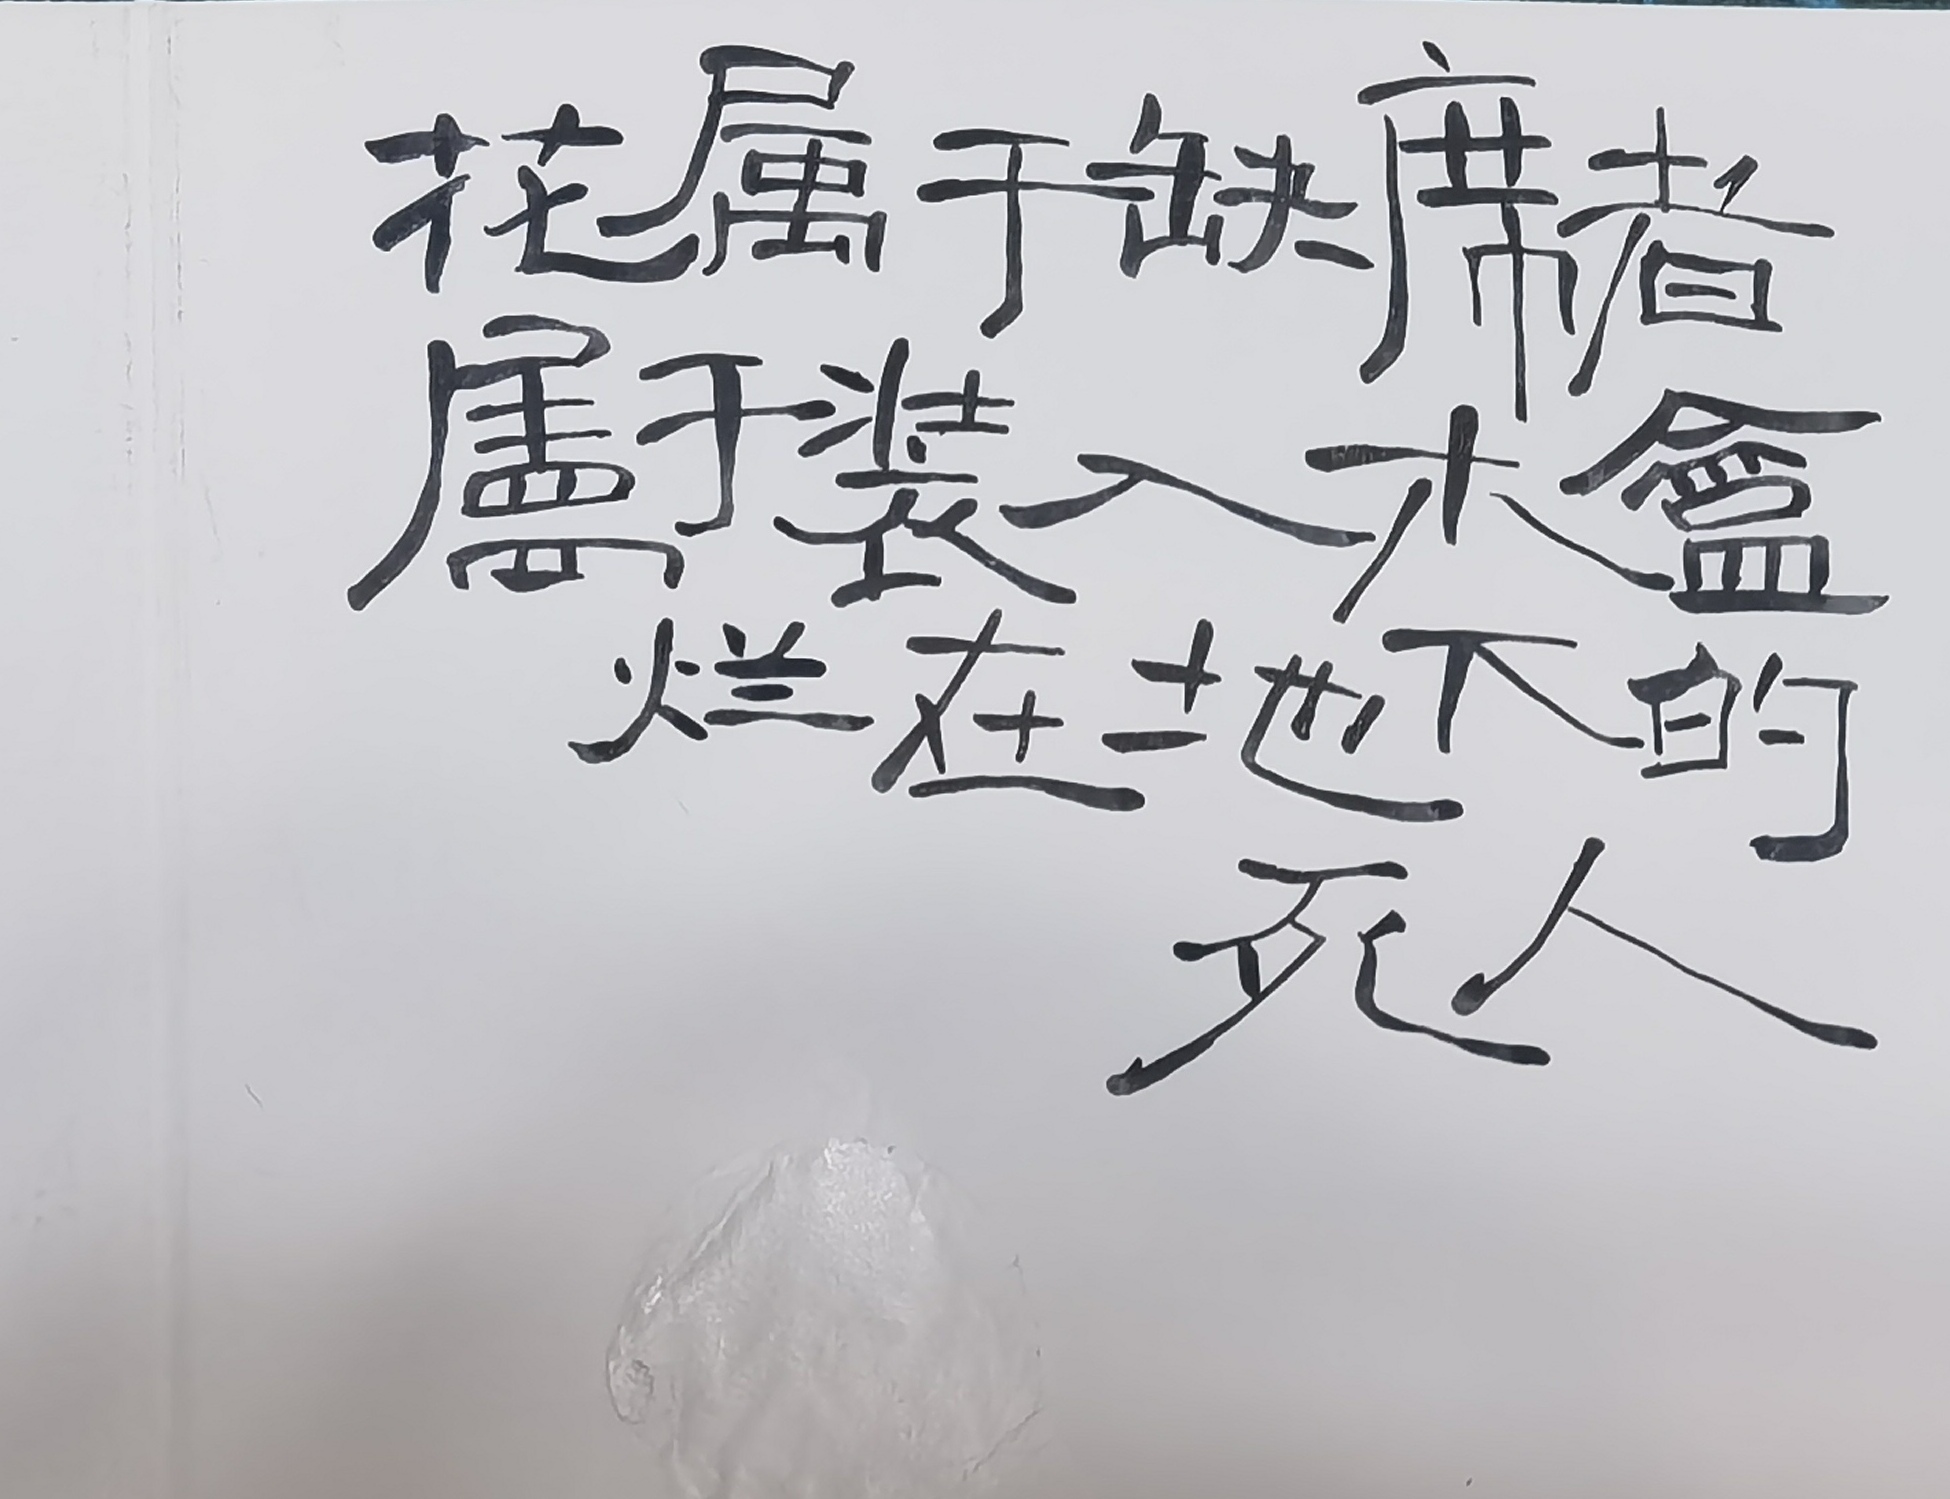 花属于缺席者
属于装入木盒
烂在地下的
死人